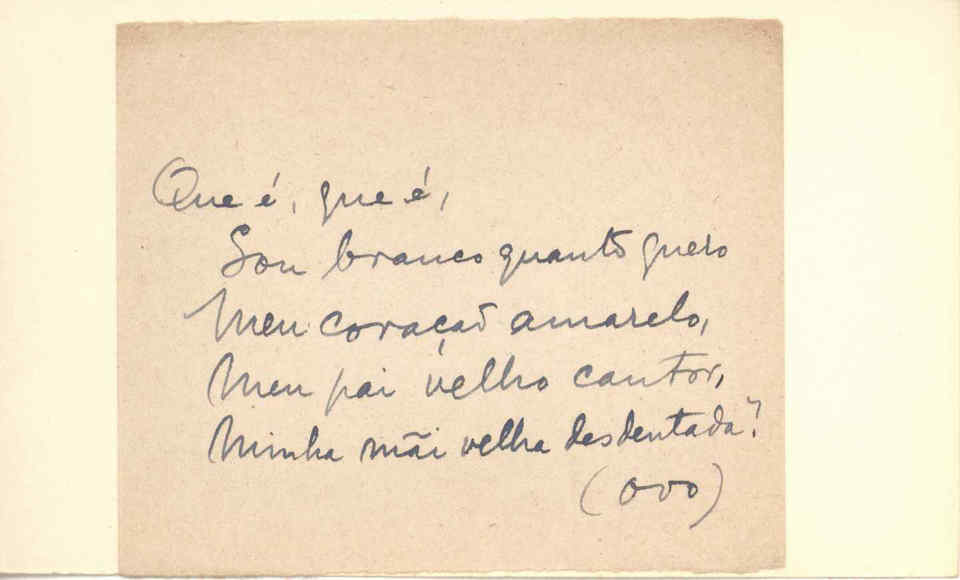 Que é, que é,
Sou branco quanto quero
Meu coração amarelo,
Meu pai velho cantor,
Minha mãi velha desdentada?
(ovo)